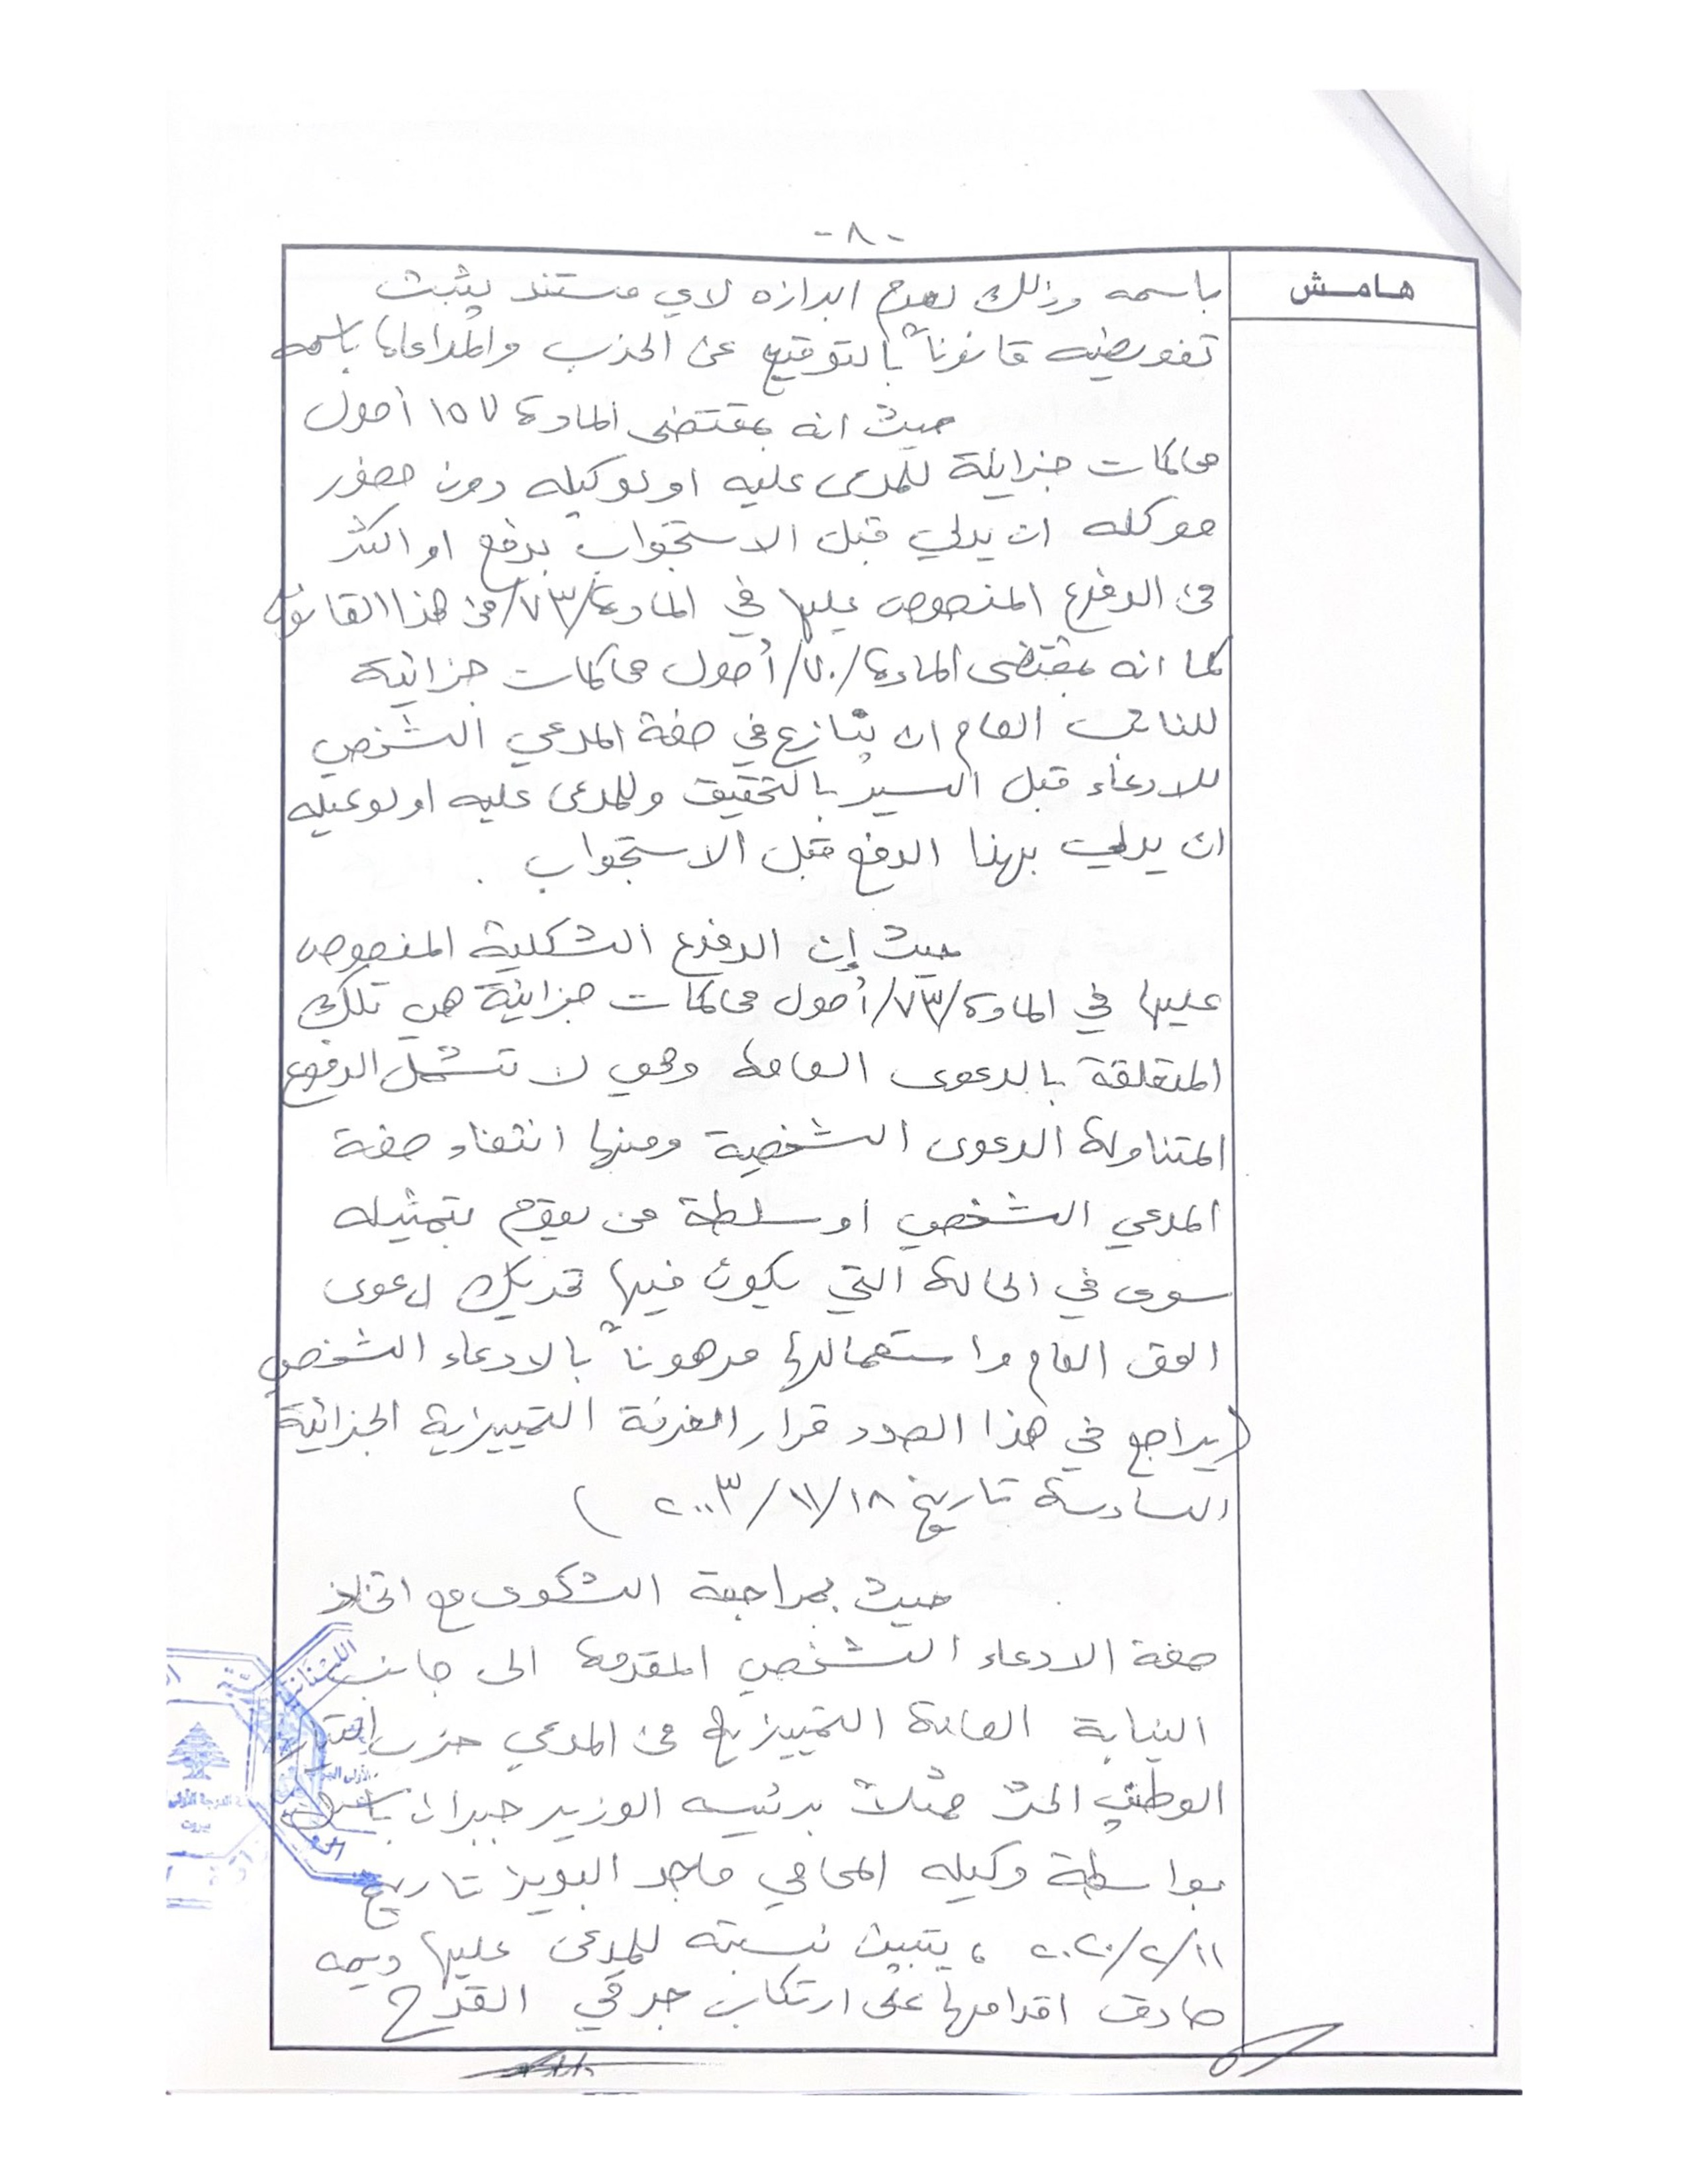 -٨-
هامش
باسمه وذلك لعدم ابرازه لاي مستند يثبت
تفويضه قانوناً بالتوقيع عن الحزب والمداعاة باسمه
حيث انه بمقتضى المادة ١٥٧ أصول
محاكمات جزائية للمدعى عليه او لوكيله دون حضور
موكله ان يدلي قبل الاستجواب بدفع او اكثر
من الدفوع المنصوص عليها في المادة /٧٣/ من هذا القانون
كما انه بمقتضى المادة /٧٠/ أصول محاكمات جزائية
للنائب العام ان ينازع في صفة المدعي الشخصي
للادعاء قبل السير بالتحقيق وللمدعى عليه او لوكيله
ان يدلي بهذا الدفع قبل الاستجواب .
حيث إن الدفوع الشكلية المنصوص
عليها في المادة /٧٣/ أصول محاكمات جزائية هي تلك
المتعلقة بالدعوى العامة وهي لا تشمل الدفوع
المتناولة الدعوى الشخصية ومنها انتفاء صفة
المدعي الشخصي او سلطة من يقوم بتمثيله
سوى في الحالة التي يكون فيها تحريك دعوى
الحق العام واستعمالها مرهوناً بالادعاء الشخصي
(يراجع في هذا الصدد قرار الغرفة التمييزية الجزائية
السادسة تاريخ ١٨/١١/٢٠٠٣ )
حيث بمراجعة الشكوى مع اتخاذ
صفة الادعاء الشخصي المقدمة الى جانب
النيابة العامة التمييزية من المدعي حزب التيار
الوطني الحرّ ممثلاً برئيسه الوزير جبران باسيل
بواسطة وكيله المحامي ماجد البويز تاريخ
١١/٢/٢٠٢٠ ، يتبين نسبته للمدعى عليها ديمه
صادق اقدامها على ارتكاب جرمي القدح
اللبنانية
بيروت